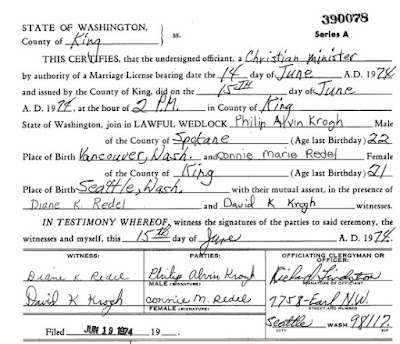 390078
STATE OF WASHINGTON,
County of King } ss. Series A
THIS CERTIFIES, that the undersigned officiant, a Christian minister
by authority of a Marriage License bearing date the 14 day of June A.D. 1974
and issued by the County of King, did on the 15TH day of June
A. D. 1974, at the hour of 2 P.M. in County of King
State of Washington, join in LAWFUL WEDLOCK Philip Alvin Krogh Male
of the County of Spokane (Age last Birthday) 22
Place of Birth Vancouver, Wash. and Connie Marie Redel Female
of the County of King (Age last Birthday) 21
Place of Birth Seattle, Wash. with their mutual assent, in the presence of
Diane K. Redel and David K Krogh witnesses.
IN TESTIMONY WHEREOF, witness the signatures of the parties to said ceremony, the
witnesses and myself, this 15TH day of June A. D. 1974.
WITNESS: PARTIES: OFFICIATING CLERGYMAN OR OFFICER:
Diane K Redel Philip Alvin Krogh Richard
MALE (SIGNATURE) SIGNATURE
David K Krogh Connie M. Redel 7758-Earl N.W.
FEMALE (SIGNATURE) STREET AND NUMBER
Seattle WASH. 98117
Filed JUN 19 1974 19 CITY ZIP